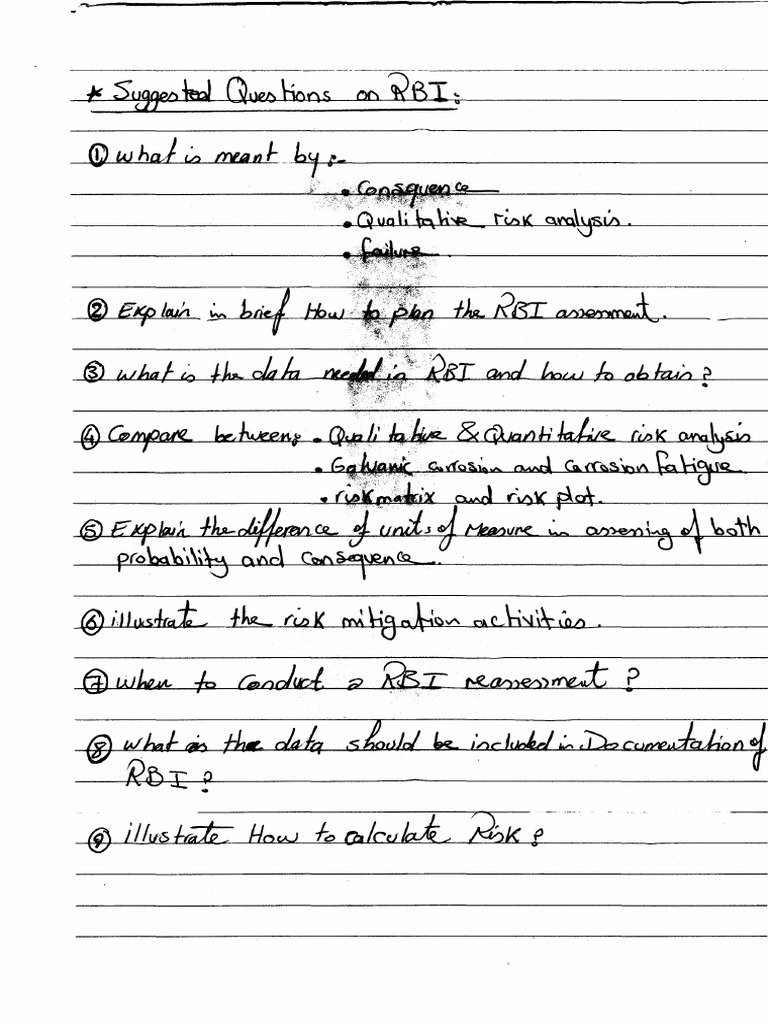 * Suggested Questions on RBI:
① What is meant by:-
• Consquence
• Qualitative risk analysis.
• failure.
② Explain in brief How to plan the RBI assessment.
③ what is the data needed in RBI and how to obtain?
④ Compare between: • Qualitative & Quantitative risk analysis
• Galvanic corrosion and corrosion fatigue.
• risk matrix and risk plot.
⑤ Explain the difference of units of Measure in assessing of both
probability and consequence.
⑥ illustrate the risk mitigation activities.
⑦ when to conduct a RBI reassessment?
⑧ what is the data should be included in Documentation of
RBI?
⑨ illustrate How to calculate Risk?